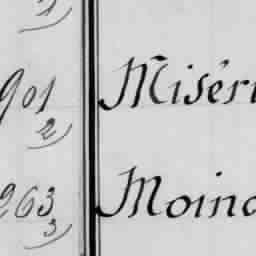 901 Misér
2)
263 Moin
3)